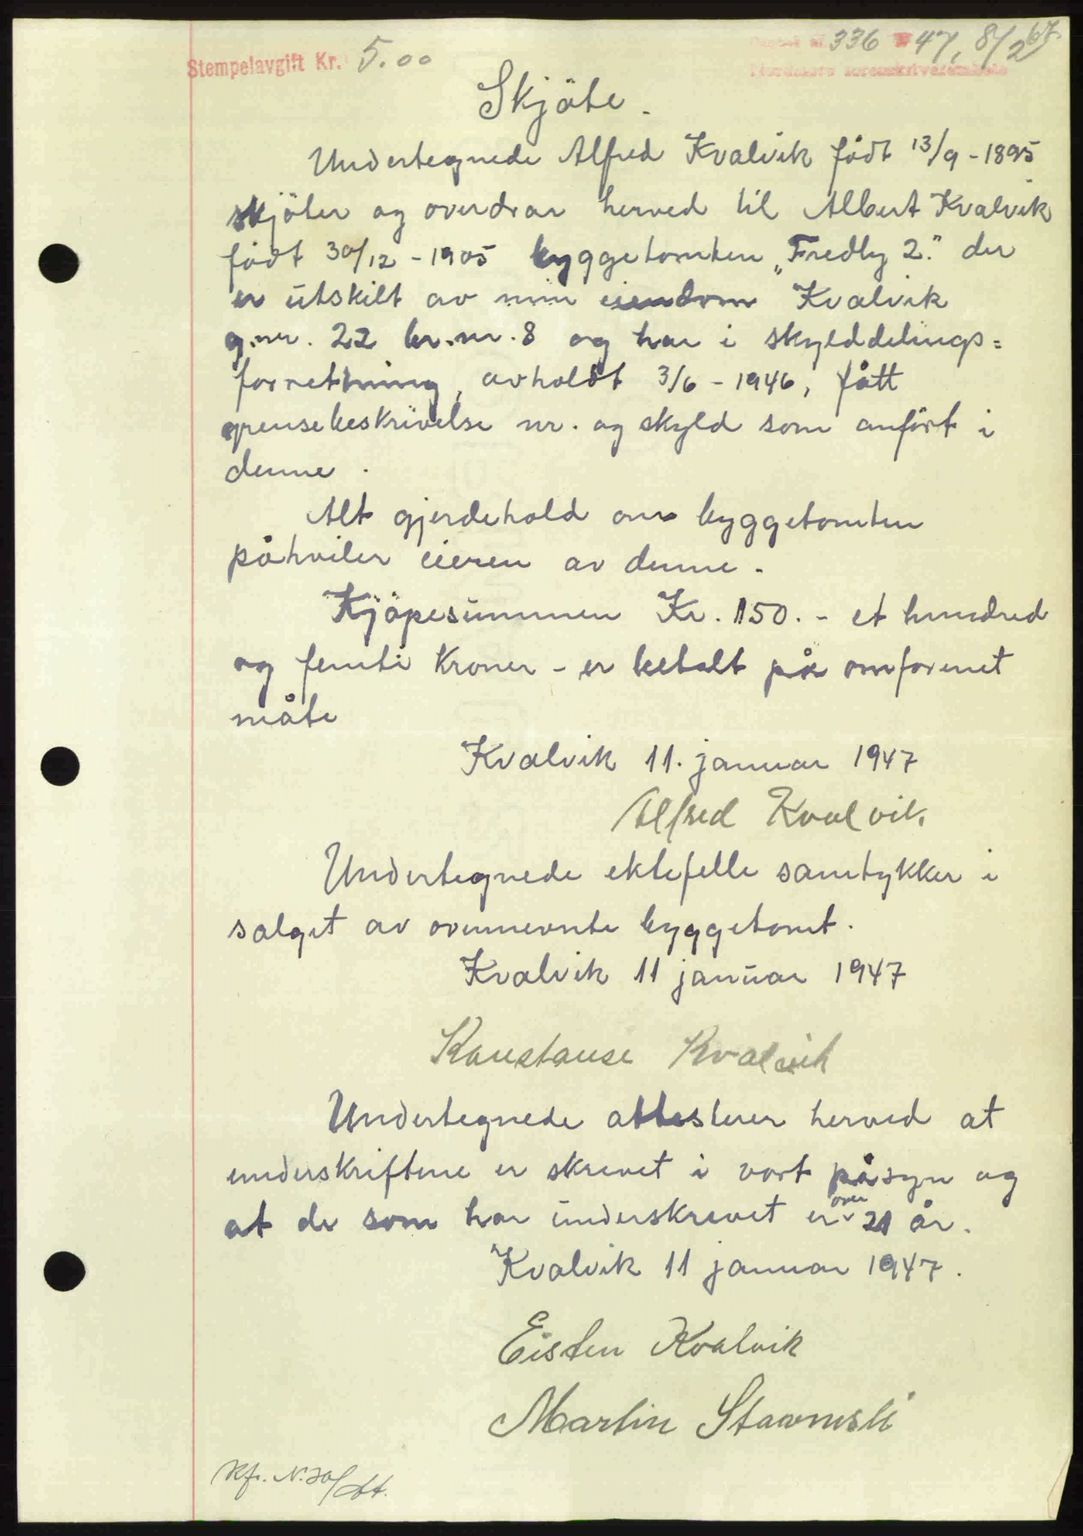 Stempelavgift Kr. 5.00
336 47, 8/2
Skjöte.
Undertegnede Alfred Kvalvik født 13/9 - 1895
skjöter og overdrar herved til Albert Kvalvik
født 30/12 - 1905 byggetomten „Fredly 2." der
er utskilt av min eiendom Kvalvik
g.nr. 22 br.nr. 8 og har i skylddelings=
forretning, avholdt 3/6 - 1946, fått
grensebeskrivelse nr. og skyld som anfört i
denne.
Alt gjerdehold om byggetomten
påhviler eieren av denne.
Kjöpesummen Kr. 150. - et hundred
og femti Kroner - er betalt på omforenet
måte
Kvalvik 11. januar 1947
Alfred Kvalvik.
Undertegnede ektefelle samtykker i
salget av ovennevnte byggetomt.
Kvalvik 11 januar 1947
Konstanse Kvalvik
Undertegnede attesterer herved at
underskriftene er skrevet i vort påsyn og
at de som har underskrevet er over 21 år.
Kvalvik 11 januar 1947.
Eisten Kvalvik
Martin